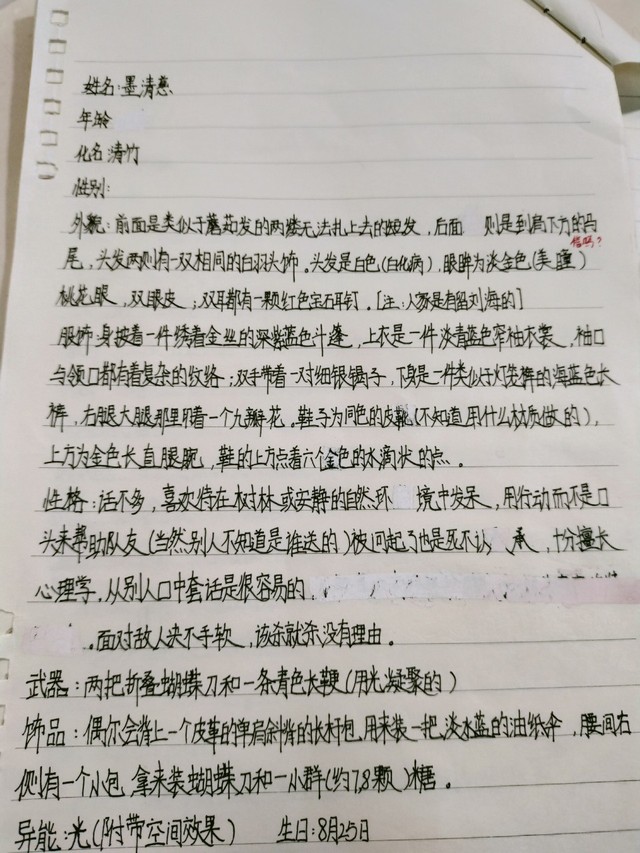 姓名:墨清慈
年龄
化名:清竹
性别:
外貌:前面是类似于蘑菇发的两搂无法扎上去的短发,后面 则是到肩下方的马
信吗?
尾,头发两则有一双相同的白羽头饰。头发是白色(白化病),眼眸为淡金色(美瞳)
桃花眼,双眼皮;双耳都有一颗红色宝石耳钉。[注:人家是有留刘海的]
服饰:身披着一件绣着金丝的深紫蓝色斗蓬,上衣是一件淡青蓝色窄袖衣裳,袖口
与领口都有着复杂的纹络;双手带着一对细银镯子,下身是一件类似于灯笼裤的海蓝色长
裤,右腿大腿那里有着一个九瓣花。鞋子为同色的皮靴(不知道用什么材质做的),
上方为金色长直腿腕,鞋的上方点着六个金色的水滴状的点。
性格:话不多,喜欢待在树林或安静的自然环 境中发呆,用行动而不是口
头来帮助队友(当然别人不知道是谁送的)被问起了也是死不认 承,十分擅长
心理学,从别人口中套话是很容易的.
.面对敌人决不手软,该杀就杀没有理由。
武器:两把折叠蝴蝶刀和一条青色长鞭(用光凝聚的)
饰品:偶尔会背上一个皮革的单肩斜挎的长杆包,用来装一把淡水蓝的油纸伞,腰间右
侧有一个小包,拿来装蝴蝶刀和一小群(约7,8颗)糖。
异能:光(附带空间效果) 生日:8月25日